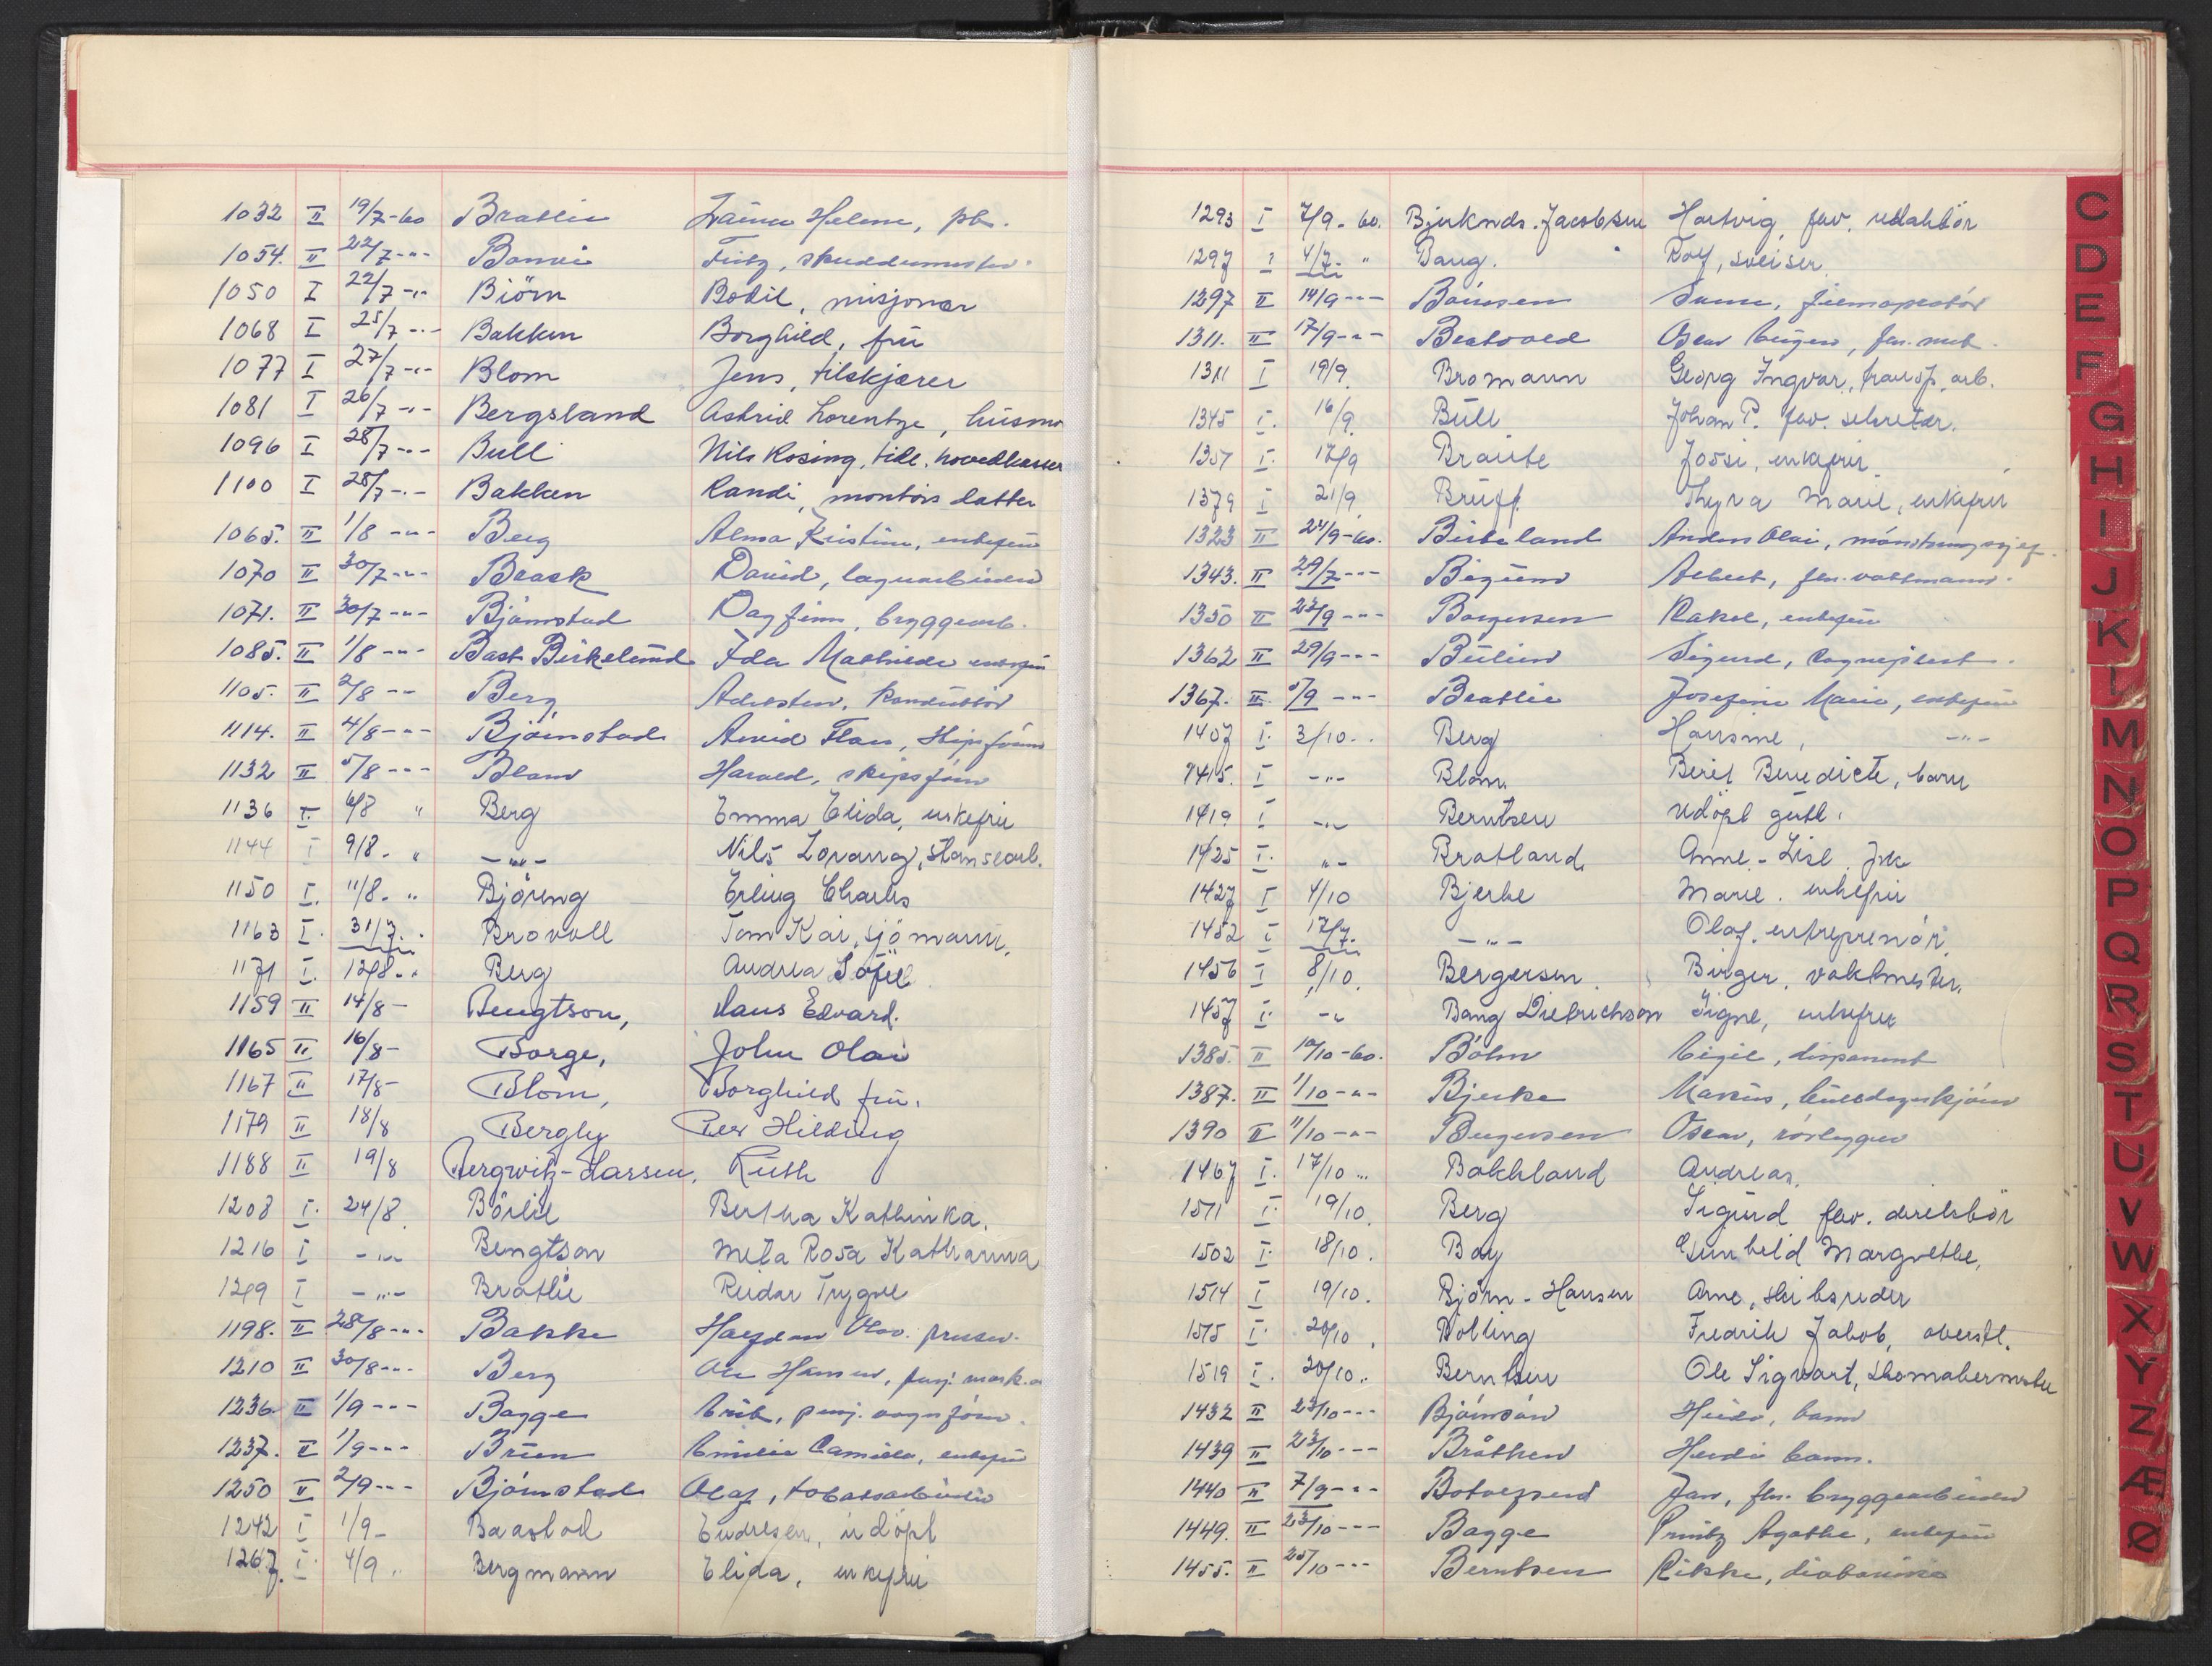 1032 II 19/7-60 Bratlie Helene, pb.
1054. II 22/7-"-
1050 I 22/7-"- Biörn Bodil, misjonær
1068 I 25/7-"- Bakken Borghild, frü
1077 I 27/7-"- Blom Jens, tilskjærer
1081 I 26/7-"- Bergsland Astrid Lorentze, hüsmo
1096 I 28/7-"- Bull Nils Rosing, tidl. hovedkasser
1100 I 28/7-"- Bakken Randi, montörs datter
1065. II 1/8-"- Berg Alma Kristine, enkefrü
1070 II 30/7-"- Brask David, lagerarbeider
1071. II 30/7-"- Björnstad Dagfinn, bryggearb.
1085. II 1/8-"- Bast Birkelünd Ida Mathilde enkefrü
1105. II 2/8-"- Berg Kondüktör
1114. II 4/8-"- Björnstad Arvid
1132 II 5/8-"- Harald, skipsförer
1136 I. 6/8 " Berg Emma Elida, enkefrü
1144 I 9/8. " -"- Nils
1150 I. 11/8. " Björeng Erling Charles
1163 I. 31/7. " Brovoll Tom Kai, sjömann.
1171 I. 12/8." Berg Andrea Sofie
1159 II 14/8- Bengtson, Hans Edvard.
1165 II 16/8- Borge, John Olai
1167 II 17/8- Blom, Borghild frü.
1179 II 18/8 Bergby Per Hilding
1188 II 19/8 Bergwitz-Larssen, Rüth
1208 I. 24/8. Börlie Bertha Kathinka.
1216 I -"- Bengtson Meta Rosa Katharina
1219 I -"- Bratlie Reidar Trygve
1198. II 28/8-"- Bakke
1210 II 30/8-"- Berg Ole Hansen,
1236. II 1/9-"- Bagge penj. vognförer.
1237. II 1/9-"- Brün Emilie Camilla, enkefrü
1250 II 2/9-"- Björnstad Olaf, tobaksarbeider
1242 I 1/9- Baastad Endresen, üdöpt
1267. I. 4/9." Bergmann Elida, enkefrü
1293 I 7/9-60. Bjerknds. Jacobsen Hartvig, fhv. redaktör
1297 I 4/7. " Bang. Rolf, sveiser.
1297 II 14/9-"-
1311. II 17/9-"- Bestvold
1311 I 19/9. Bromann Georg Ingvar, transp. arb.
1345 I. 16/9. Büll Johan P. fhv. sekretær.
1357 I. 17/9 Braüte Jossi, enkefrü
1379 I 21/9. Brüff Thyra Marie, enkefrü
1323 II 24/9-60. Birkeland Anders Olai, mönstringssjef.
1343. II 29/7-"-
1350 II 23/9-"- Borgersen Rakel, enkefrü
1362 II 29/9-"- Sigurd,
1367. II. 5/9-"- Bratlie Josefine Marie, enkefrü
1407 I. 3/10." Berg -"-
1415. I -"- Blom Berit Benedicte, barn
1419 I -"- Berntsen üdöpt gütt.
1425 I. "- Bratland Anne-Lise
1427 I 4/10 Bjerke Marie. enkefrü
1452 I 17/7. -"- Olaf. entreprenör
1456 I 8/10. Bergersen Birger, vaktmester.
1457 I. -" Bang Dietrichson Signe, enkefrü
1385. II 10/10-60. Böhm disponent
1387. II 1/10-"- Bjerke Marius,
1390 II 11/10-"- Oscar, rörlegger
1467 I. 17/10 " Bakkland Andreas.
1511 I. 19/10. Berg Sigürd fhv. direktör
1502 I. 18/10. Bay Günhild Margrethe.
1514 I 19/10. Björn-Hansen Arne, skibsreder
1515 I. 20/10. Bölling Fredrik Jakob, oberstl.
1519 I. 20/10." Berntsen Ole Sigvart, skomakermester
1432 II 23/10-"- barn
1439 II 23/10-"- Bråthen Heidi barn.
1440 II 7/9-"- Jan, fhv. bryggearbeider
1449. II 23/10-"- Bagge Agathe, enkefrü
1455. II 25/10-"- Berntsen
C
D
E
F
G
H
I
J
K
L
M
N
O
P
Q
R
S
T
U
V
W
X
Y
Z
Æ
Ø